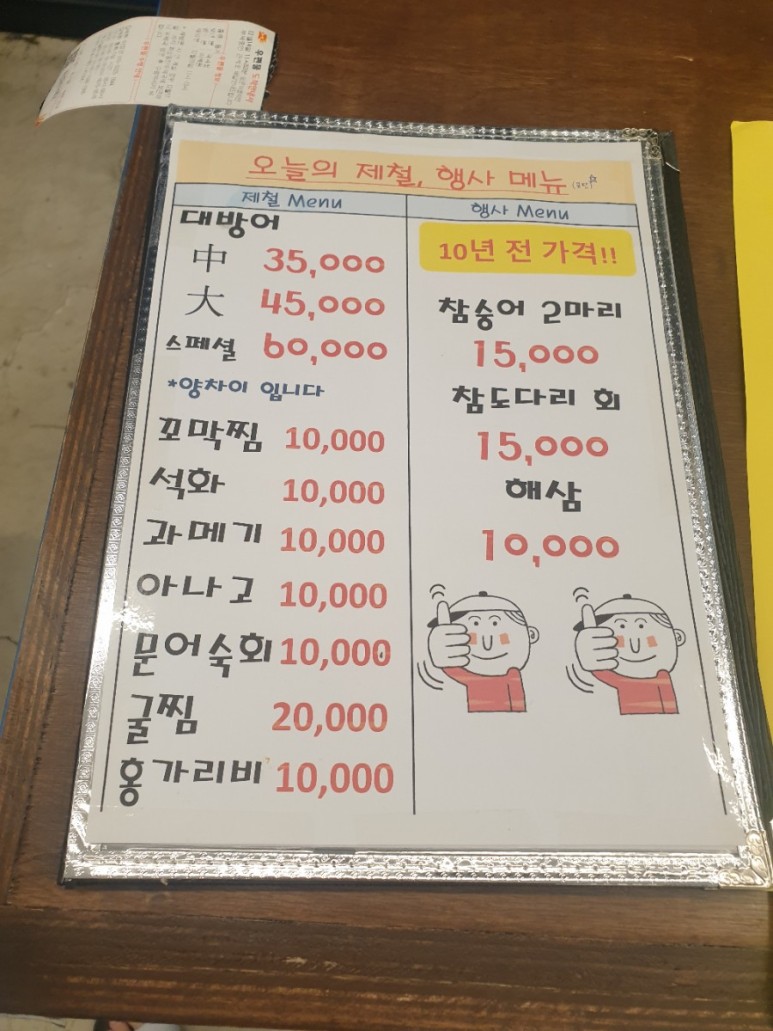 오늘의 제철, 행사 메뉴
제철 Menu
대방어
中 35,000
大 45,000
스페셜 60,000
*양차이 입니다
꼬막찜 10,000
석화 10,000
과메기 10,000
아나고 10,000
문어숙회 10,000
굴찜 20,000
홍가리비 10,000
행사 Menu
10년 전 가격!!
참숭어 2마리
15,000
참도다리 회
15,000
해삼
10,000